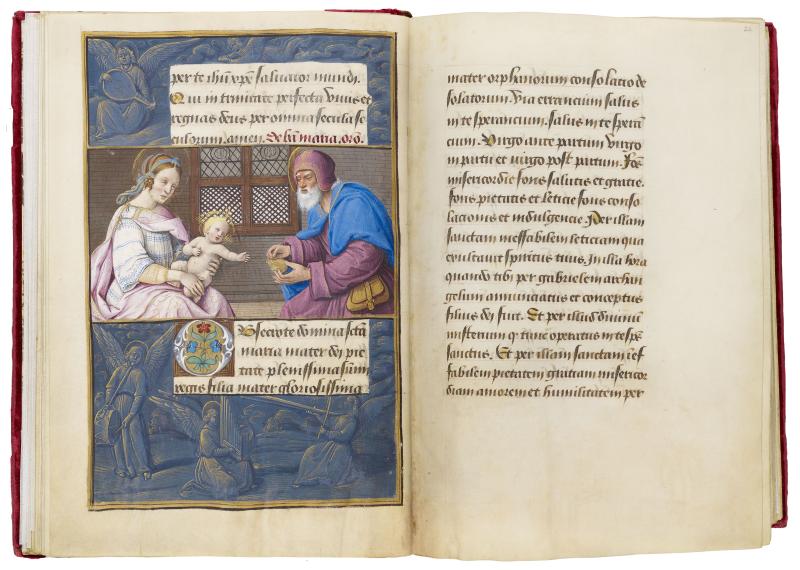 per te ihũ xp̃e saluator mundj.
Qui in trinitate perfecta viuis et
regnas deus per omnia secula se
culorum. amen. De bta maria, oro.
Obsecro te domina sctã
maria mater dei pie
tate plenissima sum̃i
regis filia mater gloriosissima
22
mater orphanorum consolacio de
solatorum. Via errancium salus
in te sperancium. salus in te sperã
cium. Virgo ante partum virgo
in partu et virgo post partum. Fõs
misericordie fons salutis et gratie.
fons pietatis et leticie fons conso
lacionis et indulgencie. Per illam
sanctam ineffabilem leticiam qua
exultauit spiritus tuus. In illa hora
quando tibi per gabrielem archan
gelum annunciatus et conceptus
filius dei fuit. Et per illud diuinũ
misterium q̃ tunc operatus in te sp̃s
sanctus. Et per illam sanctam ĩef
fabilem pietatem graciam misericor
diam amorem et humilitatem per